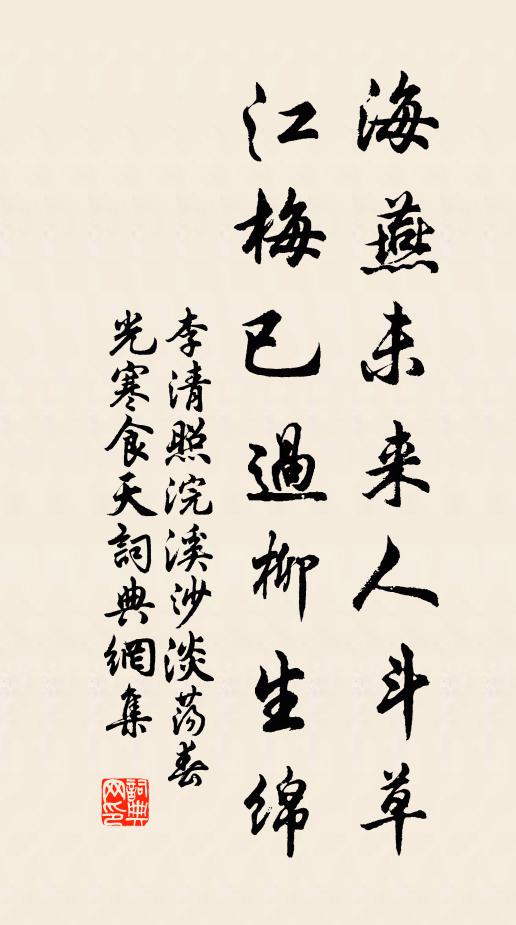 海燕未来人斗草
江梅已過柳生綿
李清照浣溪沙淡荡春
光寒食天詞典網集
詞典网印